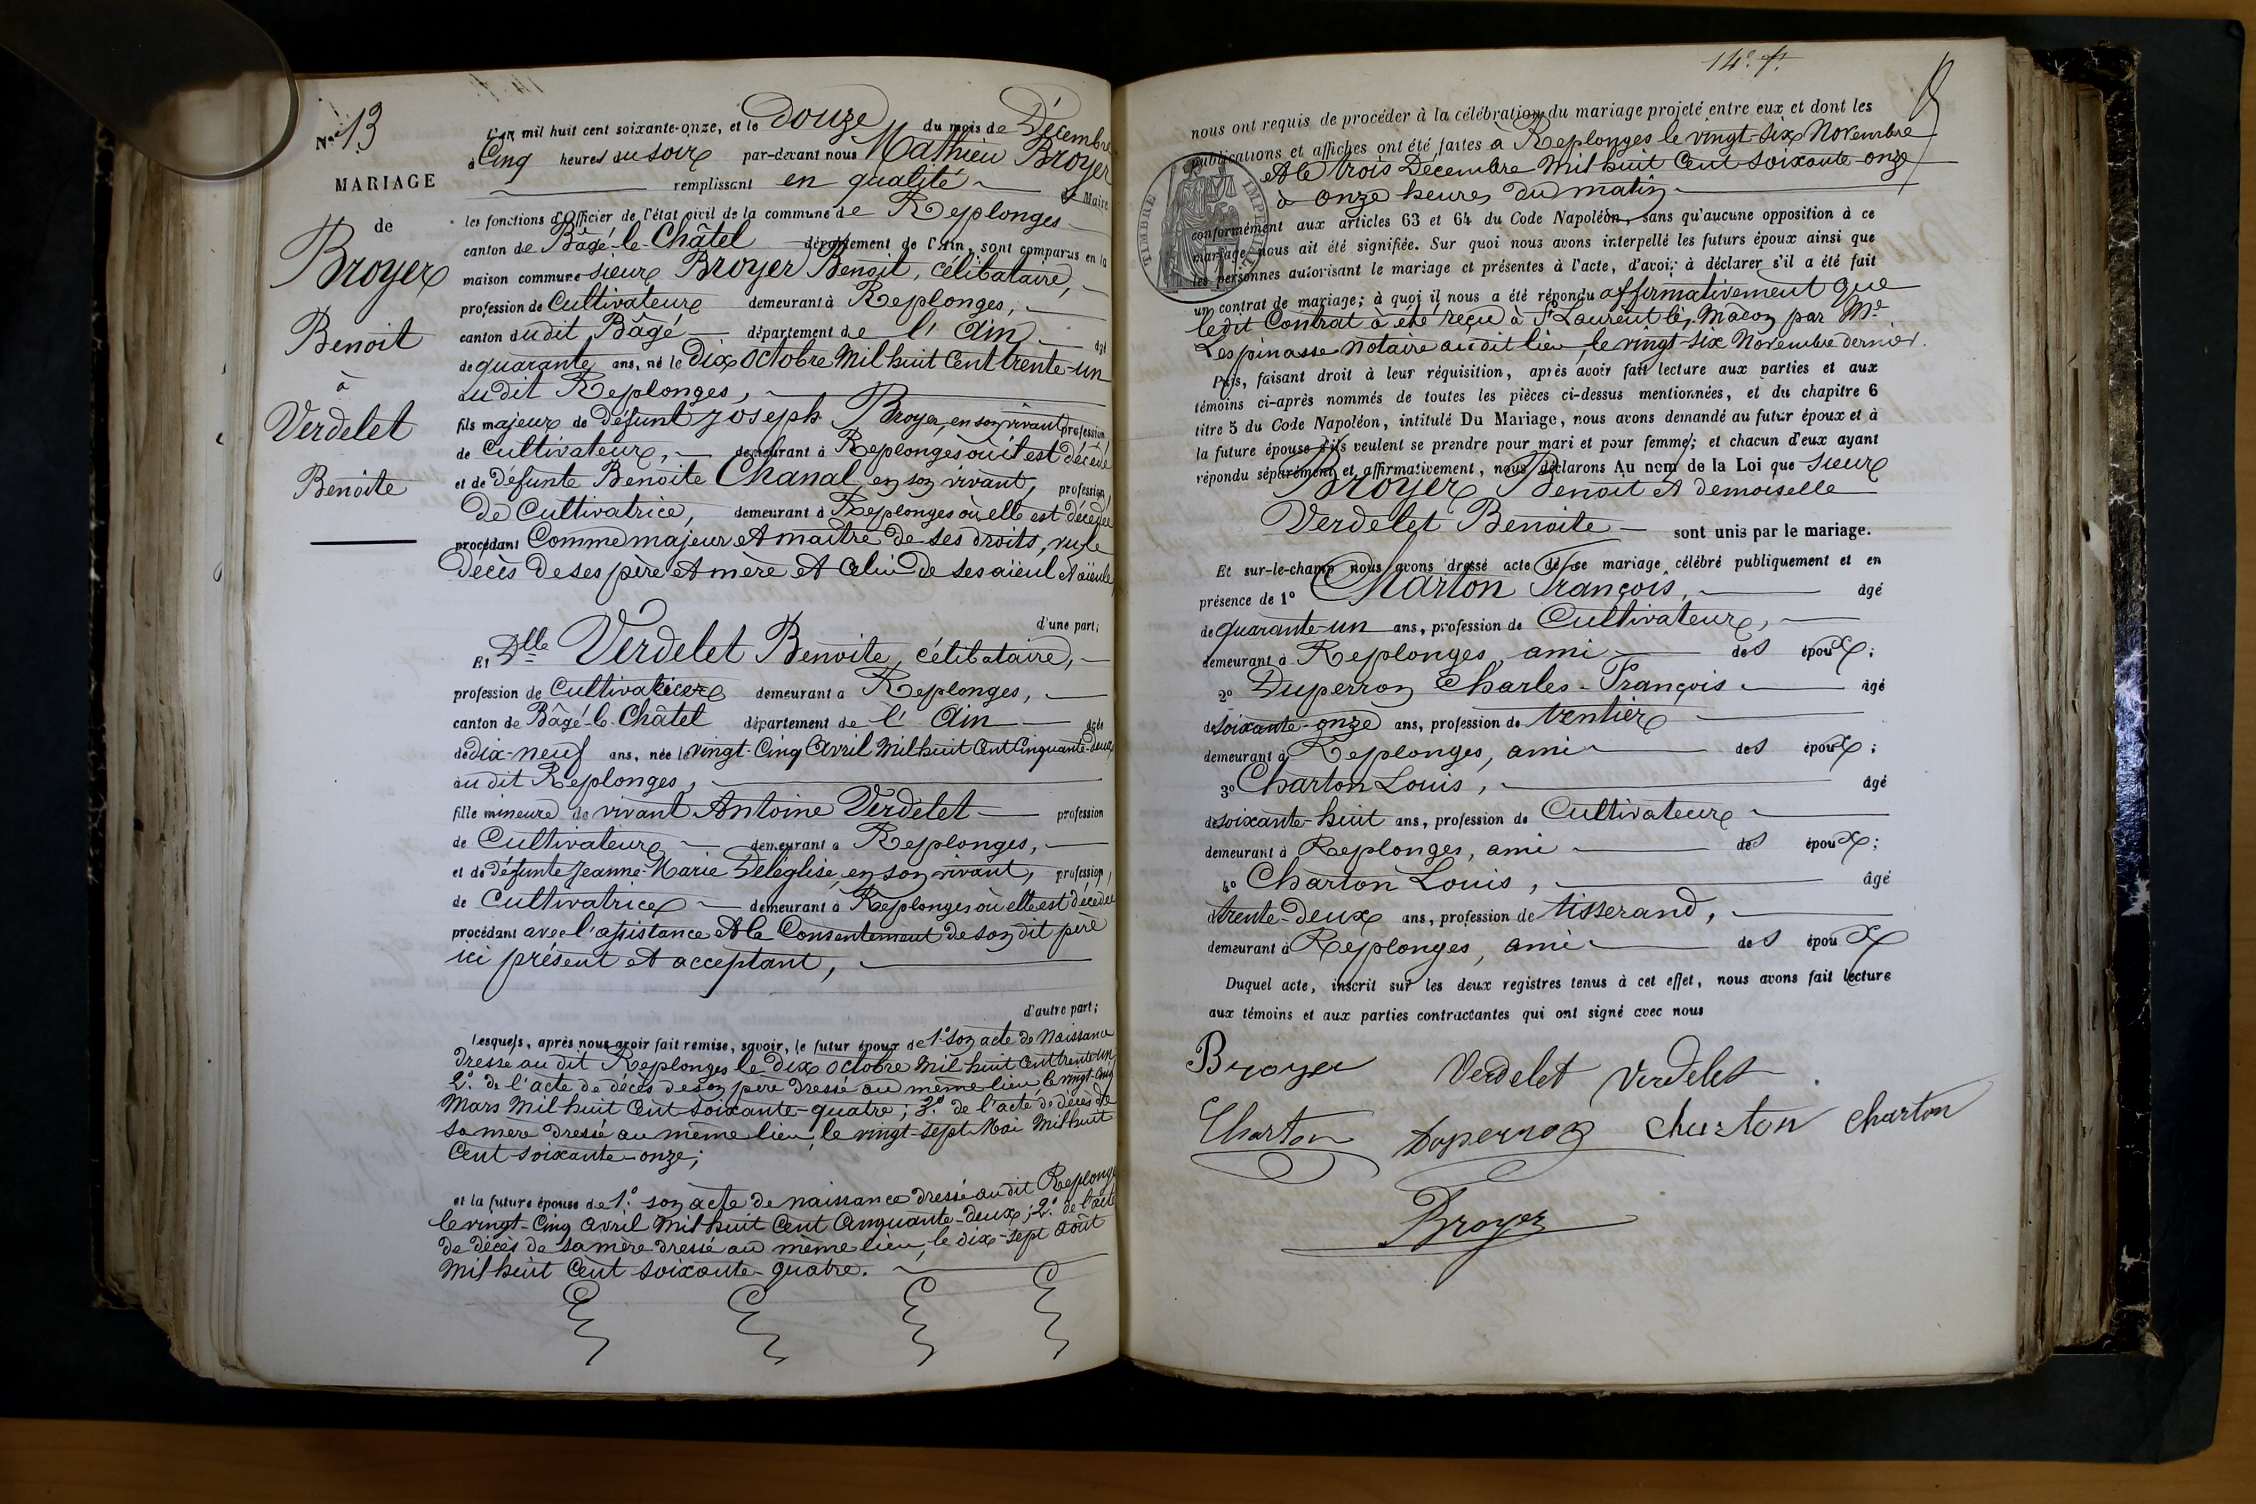 N.º 13
MARIAGE
de
Broyer
Benoit
à
Verdelet
Benoite
L'an mil huit cent soixante-onze, et le douze du mois de Décembre
à Cinq heures du soir par-devant nous Mathieu Broyer
remplissant en qualité de Maire
les fonctions d'Officier de l'état civil de la commune de Replonges
canton de Bâgé-le-Châtel département de l'Ain, sont comparus en la
maison commune sieur Broyer Benoit, célibataire,
profession de Cultivateur demeurant à Replonges,
canton dudit Bâgé département de l'Ain âgé
de quarante ans, né le Dix Octobre Mil huit Cent trente-un
audit Replonges,
fils majeur de Défunt Joseph Broyer, en son vivant profession
de Cultivateur, demeurant à Replonges où il est décédé
et de défunte Benoite Chanal en son vivant, profession
de Cultivatrice, demeurant à Replonges où elle est décédée
procédant Comme majeur et maître de ses droits, vu le
Décès de ses père et mère et Celui de ses aïeul et aïeule,
d'une part;
Et Dlle Verdelet Benoite, célibataire,
profession de Cultivatrice demeurant à Replonges,
canton de Bâgé-le-Châtel département de l'Ain âgée
de dix-neuf ans, née le vingt-Cinq Avril Mil huit Cent Cinquante-deux
au dit Replonges,
fille mineure de vivant Antoine Verdelet profession
de Cultivateur demeurant à Replonges,
et de défunte Jeanne-Marie Deléglise, en son vivant, profession
de Cultivatrice demeurant à Replonges où elle est décédée
procédant avec l'assistance et le Consentement de son dit père
ici présent et acceptant,
d'autre part;
Lesquels, après nous avoir fait remise, savoir, le futur époux de 1º son acte de Naissance
dressé au dit Replonges le Dix Octobre Mil huit Cent trente-un
2º de l'acte de décès de son père dressé au même lieu le vingt-Cinq
Mars Mil huit Cent soixante-quatre; 3º de l'acte de décès de
sa mère dressé au même lieu, le vingt-sept Mai Mil huit
Cent soixante-onze;
et la future épouse de 1º son acte de naissance dressé au dit Replonges
le vingt-Cinq Avril Mil huit Cent Cinquante-deux; 2º de l'acte
de décès de sa mère dressé au même lieu, le dix-sept Août
Mil huit Cent soixante-quatre.
14º f.
nous ont requis de procéder à la célébration du mariage projeté entre eux et dont les
publications et affiches ont été faites à Replonges le vingt-six Novembre
et le trois Décembre Mil huit Cent soixante-onze
à onze heures du matin
TIMBRE IMPÉRIAL
conformément aux articles 63 et 64 du Code Napoléon, sans qu'aucune opposition à ce
mariage nous ait été signifiée. Sur quoi nous avons interpellé les futurs époux ainsi que
les personnes autorisant le mariage et présentes à l'acte, d'avoir à déclarer s'il a été fait
un contrat de mariage; à quoi il nous a été répondu affirmativement que
ledit Contrat à été reçu à St Laurent-lès-Mâcon par Me
Lespinasse Notaire au dit lieu, le vingt-six Novembre dernier.
Puis, faisant droit à leur réquisition, après avoir fait lecture aux parties et aux
témoins ci-après nommés de toutes les pièces ci-dessus mentionnées, et du chapitre 6
titre 5 du Code Napoléon, intitulé Du Mariage, nous avons demandé au futur époux et à
la future épouse s'ils veulent se prendre pour mari et pour femme; et chacun d'eux ayant
répondu séparément et affirmativement, nous déclarons Au nom de la Loi que sieur
Broyer Benoit et demoiselle
Verdelet Benoite sont unis par le mariage.
Et sur-le-champ nous avons dressé acte de ce mariage célébré publiquement et en
présence de 1º Charton François, âgé
de quarante-un ans, profession de Cultivateur,
demeurant à Replonges, ami des époux;
2º Duperron Charles-François âgé
de soixante-onze ans, profession de rentier
demeurant à Replonges, ami des époux;
3º Charton Louis, âgé
de soixante-huit ans, profession de Cultivateur
demeurant à Replonges, ami des époux;
4º Charton Louis, âgé
trente-deux ans, profession de tisserand,
demeurant à Replonges, ami des époux
Duquel acte, inscrit sur les deux registres tenus à cet effet, nous avons fait lecture
aux témoins et aux parties contractantes qui ont signé avec nous
Broyer Verdelet Verdelet
Charton Duperron Charton Charton
Broyer